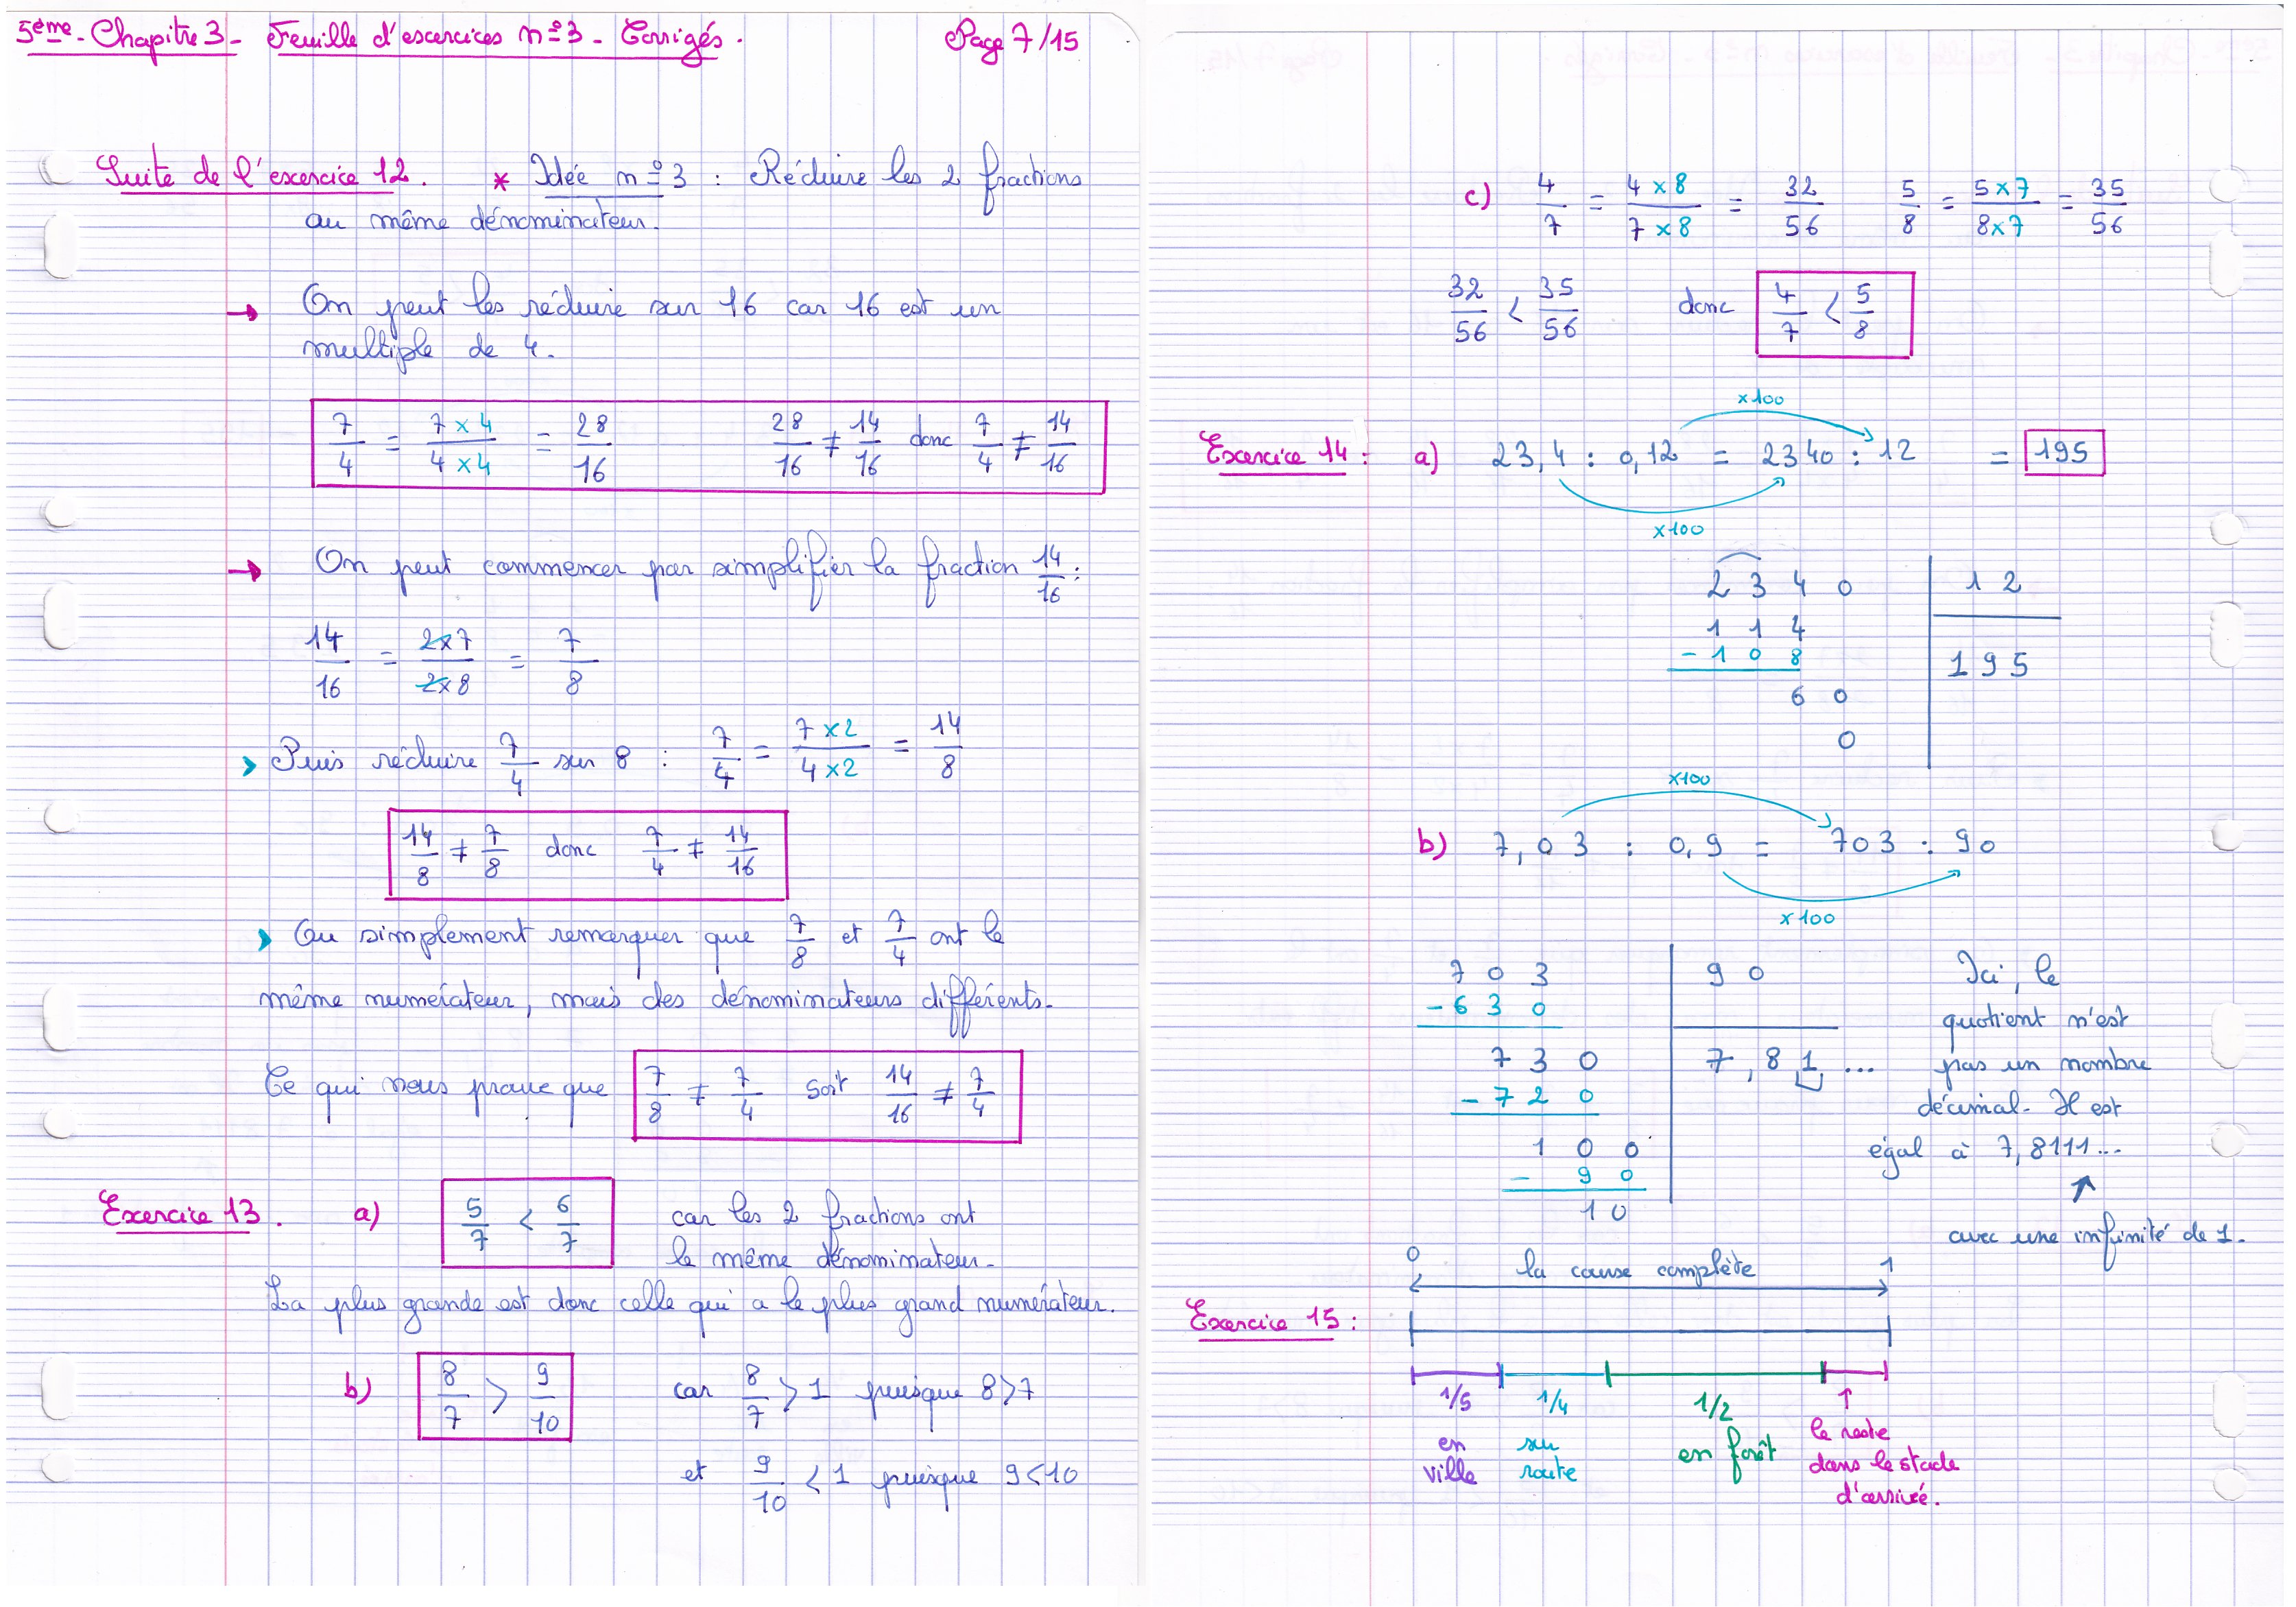 5ème - Chapitre 3 - Feuille d'exercices n°3 - Corrigés. Page 7/15
Suite de l'exercice 12. * Idée n°3 : Réduire les 2 fractions
au même dénominateur.
→ On peut les réduire sur 16 car 16 est un
multiple de 4.
7/4 = 7×4/4×4 = 28/16 28/16 ≠ 14/16 donc 7/4 ≠ 14/16
→ On peut commencer par simplifier la fraction 14/16 :
14/16 = 2×7/2×8 = 7/8
> Puis réduire 7/4 sur 8 : 7/4 = 7×2/4×2 = 14/8
14/8 ≠ 7/8 donc 7/4 ≠ 14/16
> Ou simplement remarquer que 7/8 et 7/4 ont le
même numérateur, mais des dénominateurs différents.
Ce qui nous prouve que 7/8 ≠ 7/4 soit 14/16 ≠ 7/4
Exercice 13. a) 5/7 < 6/7 car les 2 fractions ont
le même dénominateur.
La plus grande est donc celle qui a le plus grand numérateur.
b) 8/7 > 9/10 car 8/7 > 1 puisque 8>7
et 9/10 < 1 puisque 9<10
c) 4/7 = 4×8/7×8 = 32/56 5/8 = 5×7/8×7 = 35/56
32/56 < 35/56 donc 4/7 < 5/8
×100
Exercice 14 : a) 23,4 : 0,12 = 2340 : 12 = 195
×100
2340 12
114
-108 195
60
0
×100
b) 7,03 : 0,9 = 703 : 90
×100
703 90 Ici, le
-630 quotient n'est
730 7,81... pas un nombre
-720 décimal. Il est
100 égal à 7,8111...
-90
10 ↑
avec une infinité de 1.
0 la course complète 1
Exercice 15 :
1/5 1/4 1/2 ↑
en sur en forêt le reste
ville route dans le stade
d'arrivée.